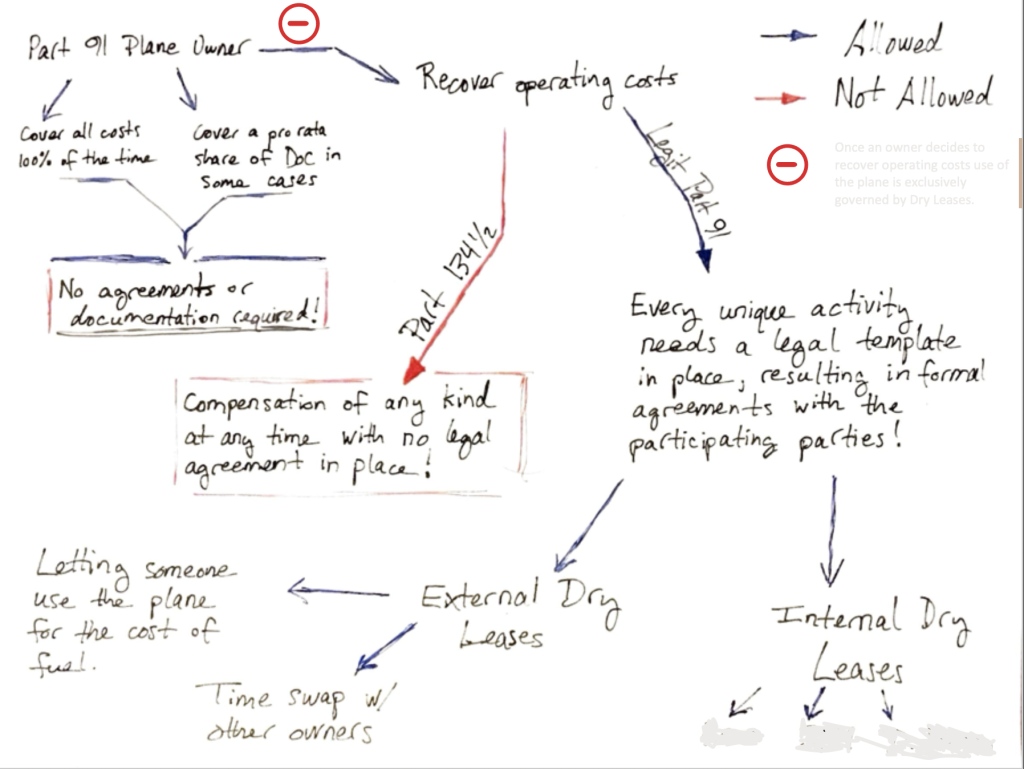 Part 91 Plane Owner
Recover operating costs
Allowed
Not Allowed
Once an owner decides to
recover operating costs use of
the plane is exclusively
governed by Dry Leases.
Cover all costs
100% of the time
Cover a pro rata
share of DOC in
some cases
No agreements or
documentation required!
Part 134 1/2
Legit Part 91
Compensation of any kind
at any time with no legal
agreement in place!
Every unique activity
needs a legal template
in place, resulting in formal
agreements with the
participating parties!
Letting someone
use the plane
for the cost of
fuel.
External Dry
Leases
Time swap w/
other owners
Internal Dry
Leases